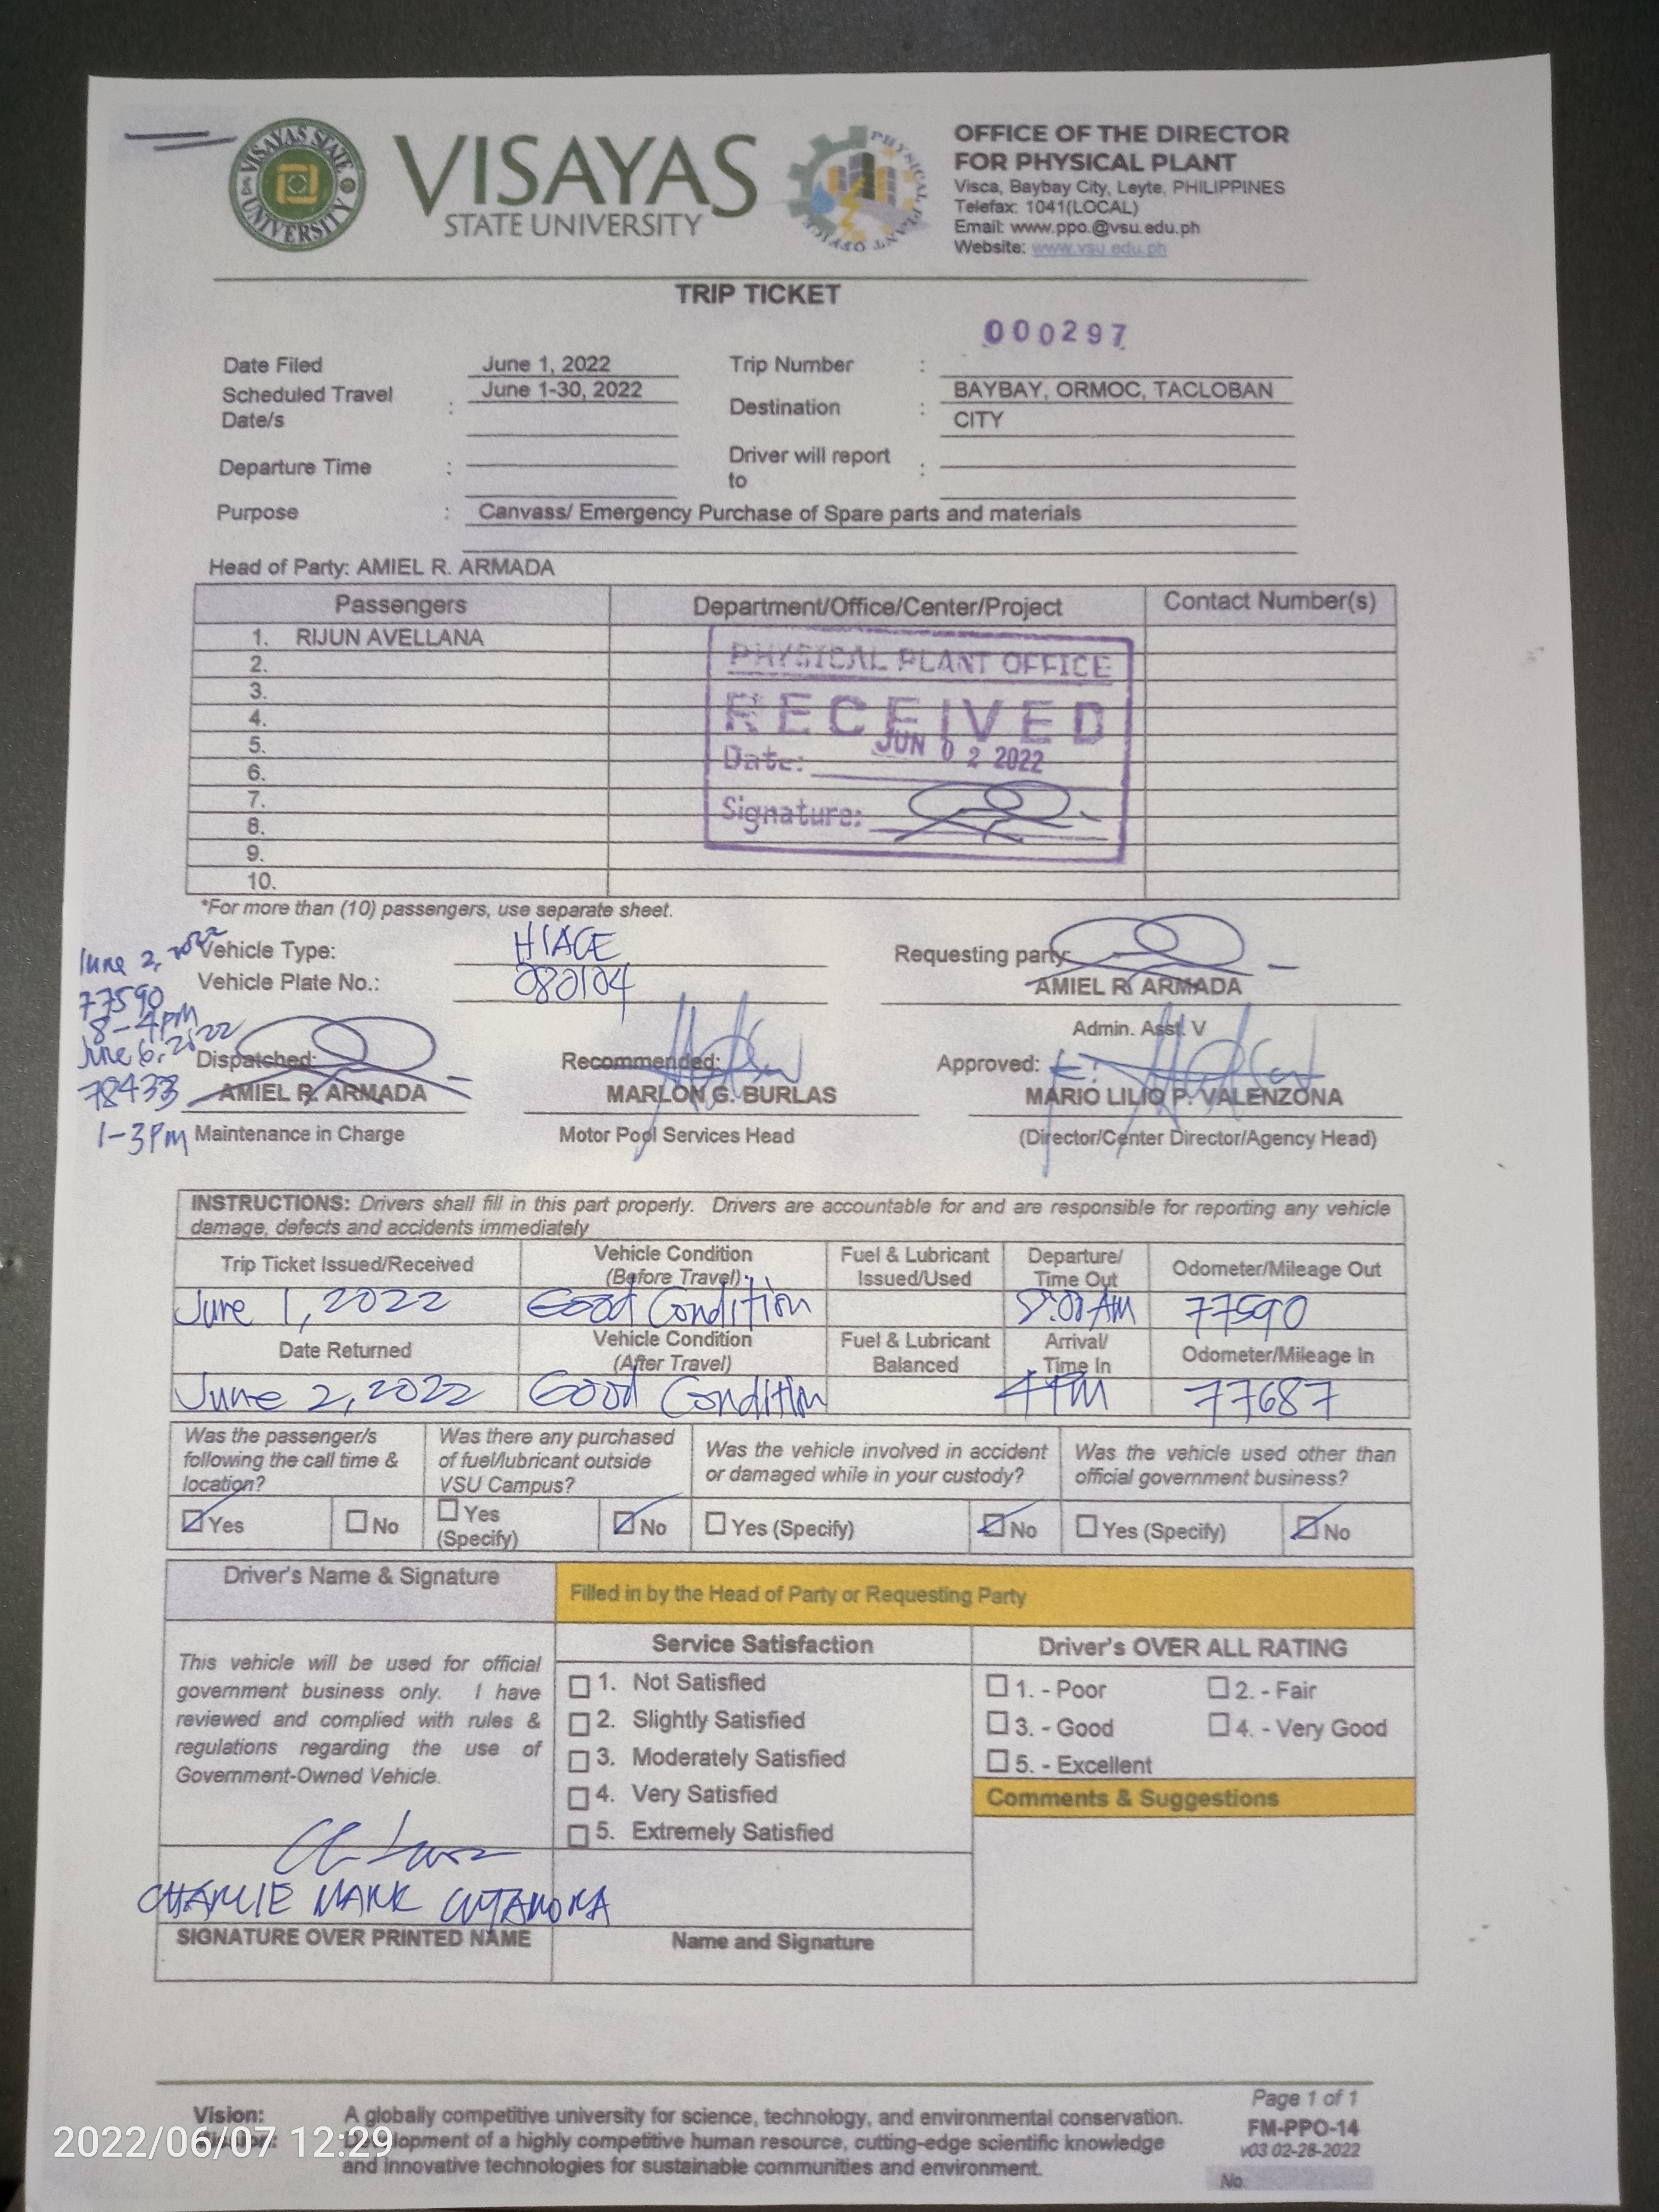 VISAYAS STATE UNIVERSITY
VISAYAS
STATE UNIVERSITY
PHYSICAL PLANT OFFICE
OFFICE OF THE DIRECTOR
FOR PHYSICAL PLANT
Visca, Baybay City, Leyte, PHILIPPINES
Telefax: 1041(LOCAL)
Email: www.ppo.@vsu.edu.ph
Website: www.vsu.edu.ph
TRIP TICKET
000297
Date Filed June 1, 2022 Trip Number :
Scheduled Travel Date/s : June 1-30, 2022 Destination : BAYBAY, ORMOC, TACLOBAN
CITY
Departure Time : Driver will report to :
Purpose : Canvass/ Emergency Purchase of Spare parts and materials
Head of Party: AMIEL R. ARMADA
Passengers Department/Office/Center/Project Contact Number(s)
1. RIJUN AVELLANA
2.
3.
4.
5.
6.
7.
8.
9.
10.
PHYSICAL PLANT OFFICE
RECEIVED
Date: JUN 02 2022
Signature:
*For more than (10) passengers, use separate sheet.
Vehicle Type: HIACE
Vehicle Plate No.: 080104
Requesting party:
AMIEL R. ARMADA
Admin. Asst. V
June 2, 2022
77590
8-4PM
June 6, 2022
78433
1-3PM
Dispatched: Recommended: Approved:
AMIEL R. ARMADA MARLON G. BURLAS MARIO LILIO P. VALENZONA
Maintenance in Charge Motor Pool Services Head (Director/Center Director/Agency Head)
INSTRUCTIONS: Drivers shall fill in this part properly. Drivers are accountable for and are responsible for reporting any vehicle
damage, defects and accidents immediately
Trip Ticket Issued/Received Vehicle Condition (Before Travel) Fuel & Lubricant Issued/Used Departure/ Time Out Odometer/Mileage Out
June 1, 2022 Good Condition 8:00 AM 77590
Date Returned Vehicle Condition (After Travel) Fuel & Lubricant Balanced Arrival/ Time In Odometer/Mileage In
June 2, 2022 Good Condition 4PM 77687
Was the passenger/s following the call time & location? Was there any purchased of fuel/lubricant outside VSU Campus? Was the vehicle involved in accident or damaged while in your custody? Was the vehicle used other than official government business?
Yes No Yes (Specify) No Yes (Specify) No Yes (Specify) No
Driver's Name & Signature
Filled in by the Head of Party or Requesting Party
This vehicle will be used for official
government business only. I have
reviewed and complied with rules &
regulations regarding the use of
Government-Owned Vehicle.
CHARLIE MARK CUTAMORA
SIGNATURE OVER PRINTED NAME
Service Satisfaction
1. Not Satisfied
2. Slightly Satisfied
3. Moderately Satisfied
4. Very Satisfied
5. Extremely Satisfied
Name and Signature
Driver's OVER ALL RATING
1. - Poor 2. - Fair
3. - Good 4. - Very Good
5. - Excellent
Comments & Suggestions
Vision: A globally competitive university for science, technology, and environmental conservation.
Development of a highly competitive human resource, cutting-edge scientific knowledge
and innovative technologies for sustainable communities and environment.
Page 1 of 1
FM-PPO-14
v03 02-28-2022
No.
2022/06/07 12:29